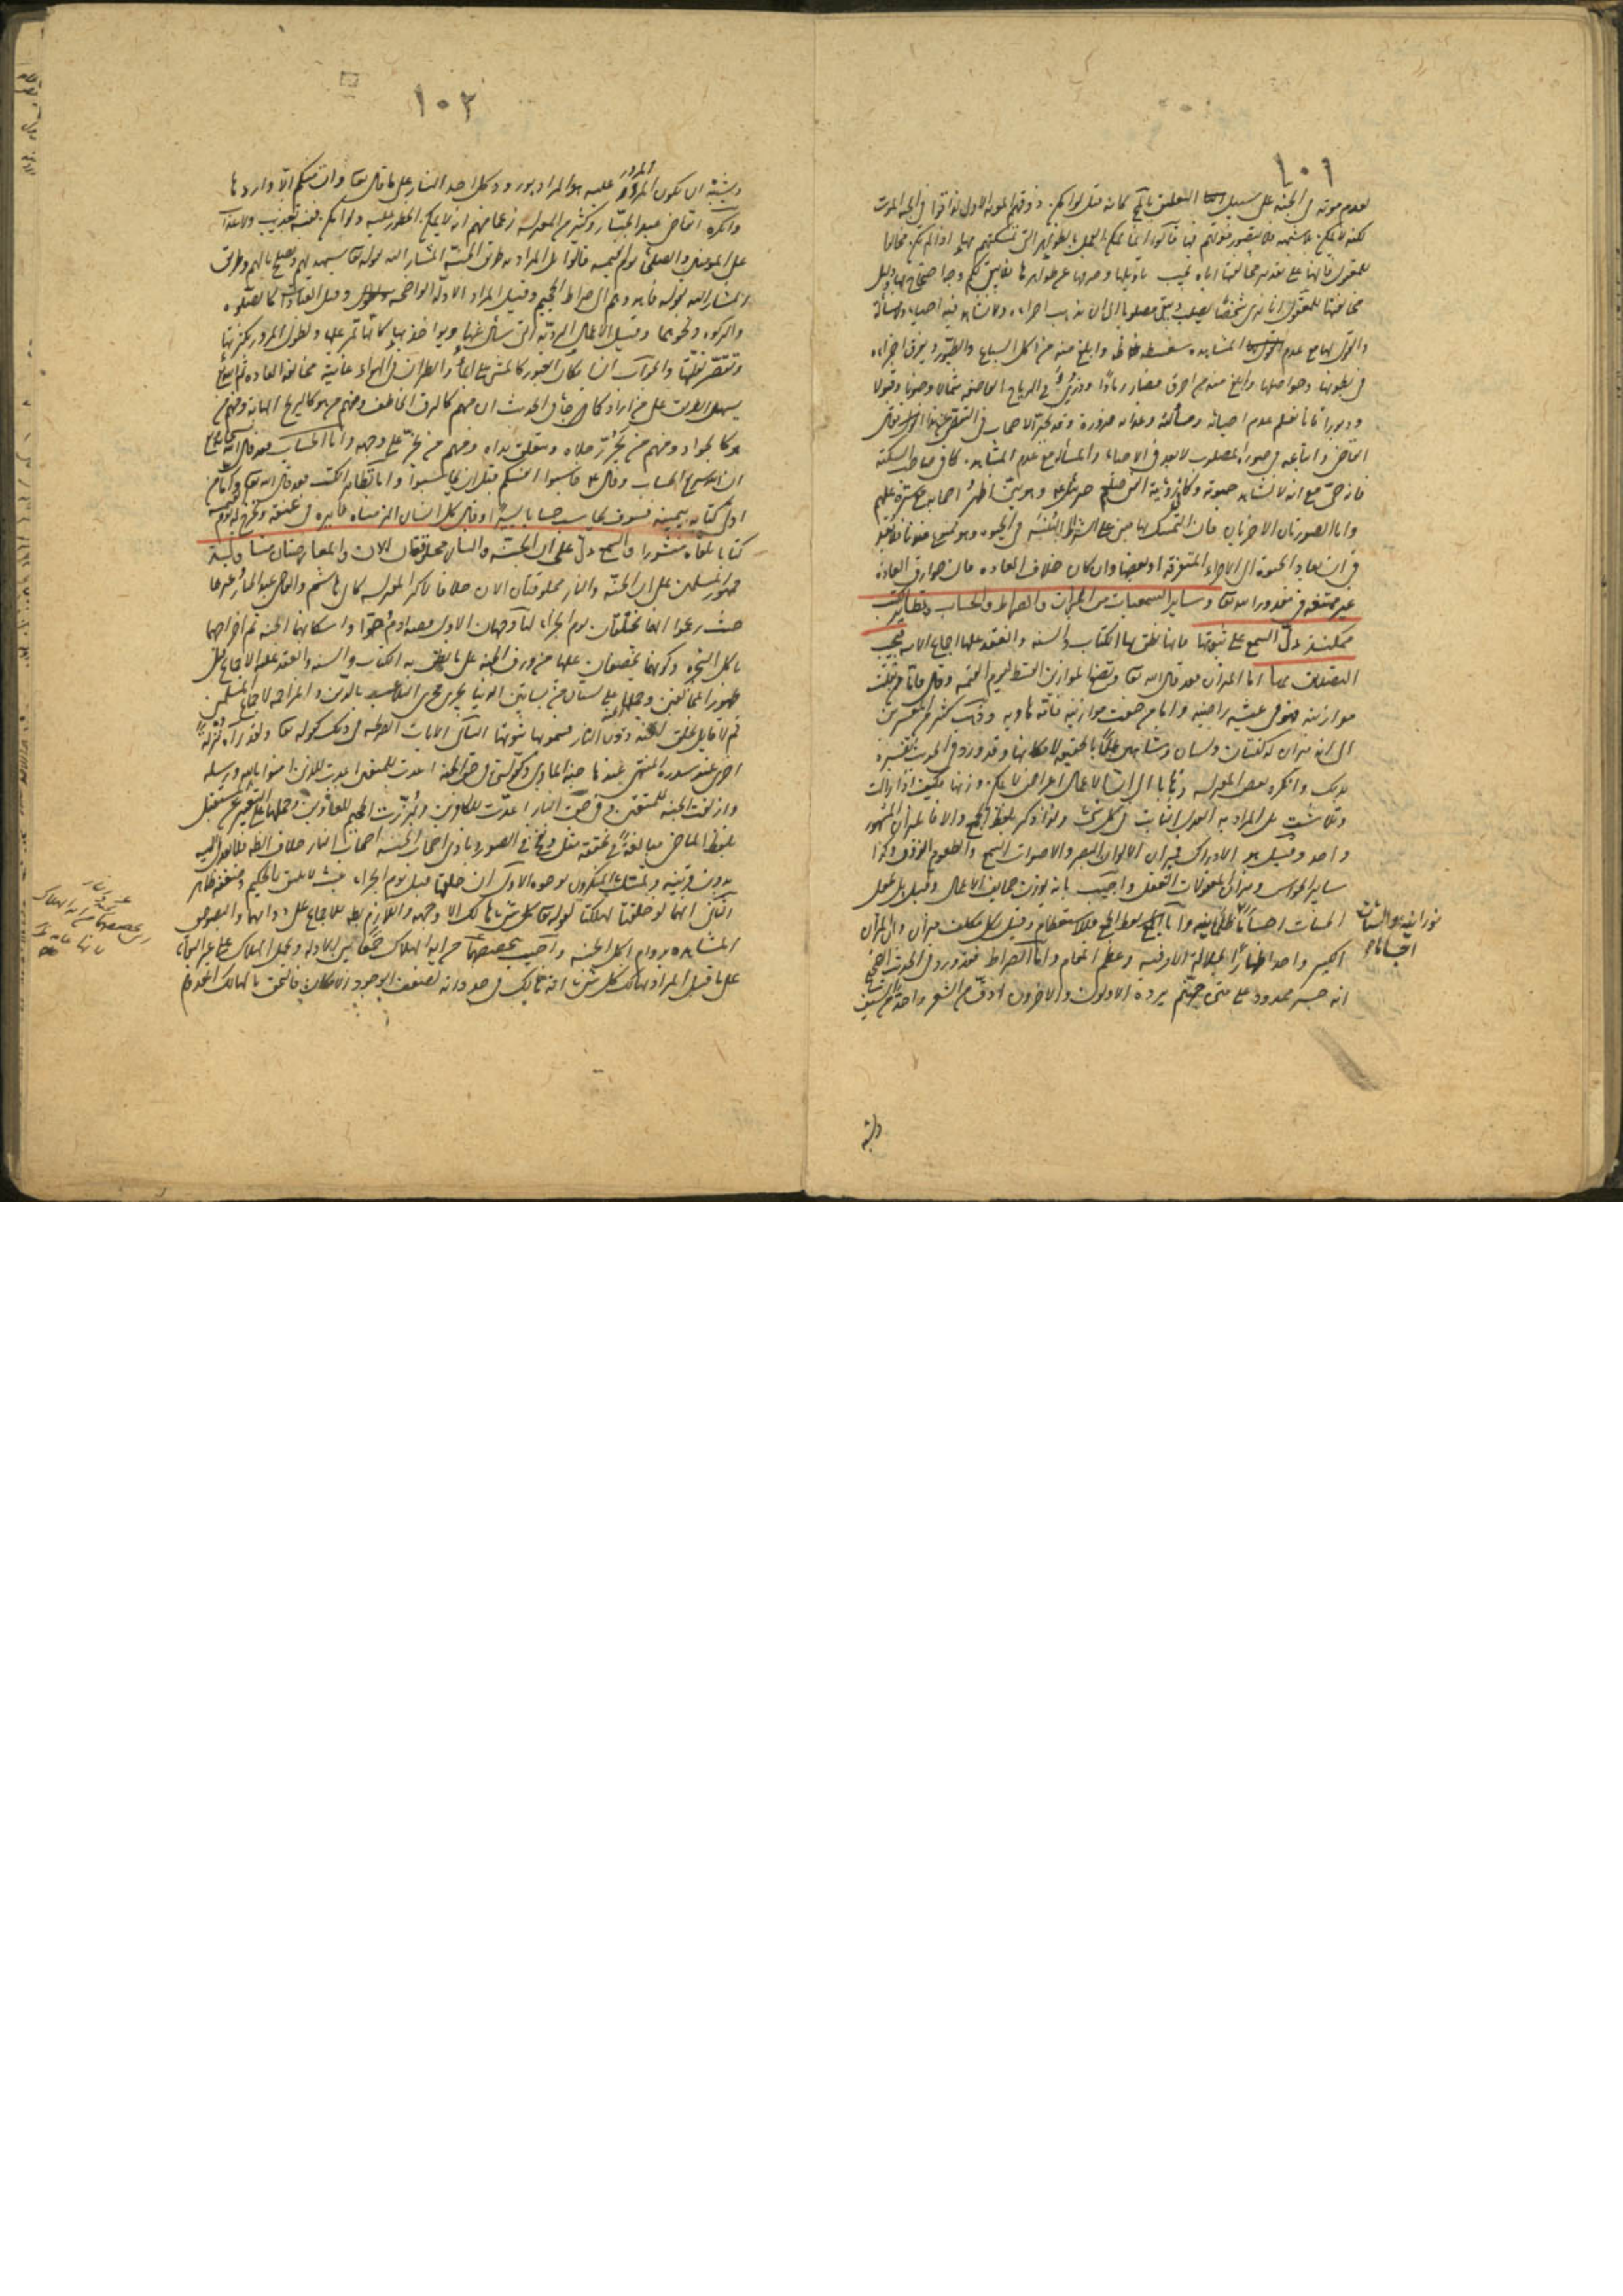 ١٠١
لعدم موته في الجنة على سبيل التعليق بالمحال كانه قيل لو امكن ذوقهم الموتة الاولى لذاقوا في الجنة الموت
لكنه لا يمكن بلا شبهة فلا يتصور موتهم فيها قالوا انما يمكن العمل بالظواهر التي تمسكتم بها اذا لم تكن مخالفة
للمعقول فانها على تقدير مخالفتها اياه يجب تأويلها وصرفها عن ظواهرها
مخالفتها للمعقول انا نرى شخصا يصلب ويبقى مصلوبا الى ان تذهب اجزاءه ولا نشاهد فيه احياء ومسألة
والقول بهما مع عدم المشاهدة سفسطة ظاهرة وابلغ منه من اكل السباع والطيور وتفرق اجزاءه
في بطونها وحواصلها وابلغ منه من احرق فصار رمادا وذري في الرياح العاصفة شمالا وجنوبا وقبولا
ودبورا فانا نعلم عدم احيائه ومسألته وعذابه ضرورة وقد تحير الاصحاب في التفصي عن هذا فقال
القاضي واتباعه في صورة المصلوب لا بعد في الاحياء والمسألة مع عدم المشاهدة كما في صاحب السكتة
فانه حي مع انا لا نشاهد حيوته وكما في رؤية النبي صلعم جبرئيل ع وهو بين اظهر اصحابه مع ستره عليهم
واما الصورتان الاخريان فان التمسك بهما مبني على اشتراط البنية في الحيوة وهو ممنوع عندنا فلا بعد
في ان تعاد الحيوة الى الاجزاء المتفرقة او بعضها وان كان خلاف العادة فان خوارق العادة
غير ممتنعة في مقدور الله تعا وساير السمعيات من الميزان والصراط والحساب وتطاير الكتب
ممكنة دل السمع على ثبوتها فانها نطق بها الكتاب والسنة وانعقد عليها اجماع الامة فيجب
التصديق بها اما الميزان فقد قال الله تعا ونضع الموازين القسط ليوم القيمة وقال فاما من ثقلت
موازينه فهو في عيشة راضية واما من خفت موازينه فامه هاوية وذهب كثير من المفسرين
الى انه ميزان له كفتان ولسان وشاهين عملا بالحقيقة لامكانها وقد ورد في الحديث تفسيره
بذلك وانكره بعض المعتزلة ذهابا الى ان الاعمال اعراض لا يمكن وزنها فكيف اذا زالت
وتلاشت بل المراد به العدل الثابت في كل شيء ولذا ذكر بلفظ الجمع والا فالميزان المشهور
واحد وقيل هو الادراك فميزان الالوان البصر والاصوات السمع والطعوم الذوق وكذا
ساير الحواس وميزان المعقولات العقل واجيب بانه يوزن صحايف الاعمال وقيل بل تجعل
الحسنات اجساما نورانية والسيئات اجساما ظلمانية واما لفظ الجمع فللاستعظام وقيل لكل مكلف ميزان وانما الميزان
الكبير واحد اظهارا لجلالة الامر فيه وعظم المقام واما الصراط فقد ورد في الحديث الصحيح
انه جسر ممدود على متن جهنم يرده الاولون والاخرون ادق من الشعر واحد من السيف
١٠٢
ويشبه ان يكون المرور عليه هو المراد بورود كل احد النار على ما قال تعا وان منكم الا واردها
وانكره القاضي عبد الجبار وكثير من المعتزلة زعما منهم انه لا يمكن الخطور عليه ولو امكن ففيه تعذيب ولا عذاب
على المؤمنين والصلحاء يوم القيمة قالوا بل المراد به طريق الجنة المشار اليه بقوله تعا سيهديهم ويصلح بالهم وطريق
المشار اليه بقوله فاهدوهم الى صراط الجحيم وقيل المراد الادلة الواضحة وقيل العبادات كالصلوة
والزكوة ونحوهما وقيل الاعمال الردية التي يسأل عنها ويواخذ بها كانه يمر عليها ويطول المرور بكثرتها
ويقصر بقلتها والجواب ان امكان العبور كالمشي على الماء والطيران في الهواء غايته مخالفة العادة ثم الله تعا
يسهل الطريق على من اراد كما جاء في الحديث ان منهم كالبرق الخاطف ومنهم من هو كالريح الهابة ومنهم من
هو كالجواد ومنهم من تجوز رجلاه وتتعلق يداه ومنهم من يخر على وجهه واما الحساب فقد قال الله تعا
ان الله سريع الحساب وقال ع حاسبوا انفسكم قبل ان تحاسبوا واما تطاير الكتب فقد قال الله تعا فاما من
اوتي كتابه بيمينه فسوف يحاسب حسابا يسيرا وقال وكل انسان الزمناه طايره في عنقه ونخرج له يوم القيمة
كتابا يلقاه منشورا والسمع دل على ان الجنة والنار مخلوقتان الان
جمهور المسلمين على ان الجنة والنار مخلوقتان الان خلافا لاكثر المعتزلة كابي هاشم والقاضي عبد الجبار وغيرهما
حيث زعموا انهما تخلقان يوم الجزاء لنا وجهان الاول قصة ادم وحوا واسكانهما الجنة ثم اخراجهما
باكل الشجرة وكونهما يخصفان عليهما من ورق الجنة على ما نطق به الكتاب والسنة وانعقد عليه الاجماع قبل
ظهور المخالفين وحملها على بستان من بساتين الدنيا يجري مجرى التلاعب بالدين والمراغمة لاجماع المسلمين
ثم لا قايل بخلق الجنة دون النار فثبوتها ثبوتها الثاني الايات الصريحة في ذلك كقوله تعا ولقد رآه نزلة
اخرى عند سدرة المنتهى عندها جنة الماوى وكقوله تعا في حق الجنة اعدت للمتقين اعدت للذين امنوا بالله ورسله
وازلفت الجنة للمتقين وفي حق النار اعدت للكافرين وبرزت الجحيم للغاوين وحملها على التعبير عن المستقبل
بلفظ الماضي مبالغة في تحققه مثل ونفخ في الصور ونادى اصحاب الجنة اصحاب النار خلاف الظ فلا يعدل اليه
بدون قرينة وتمسك المنكرون بوجوه الاول ان خلقهما قبل يوم الجزاء عبث لا يليق بالحكيم وضعفه ظاهر
الثاني انهما لو خلقتا لهلكتا لقوله تعا كل شيء هالك الا وجهه واللازم بط للاجماع على دوامهما وللنصوص
المشاهدة بدوام اكل الجنة واجيب بتخصيصهما من اية الهلاك جمعا بين الادلة وبحمل الهلاك على غير الفناء
على ما قيل المراد بهالك كل شيء انه هالك في حد ذاته لضعف الوجود الامكاني فالتحق بالهالك المعدوم